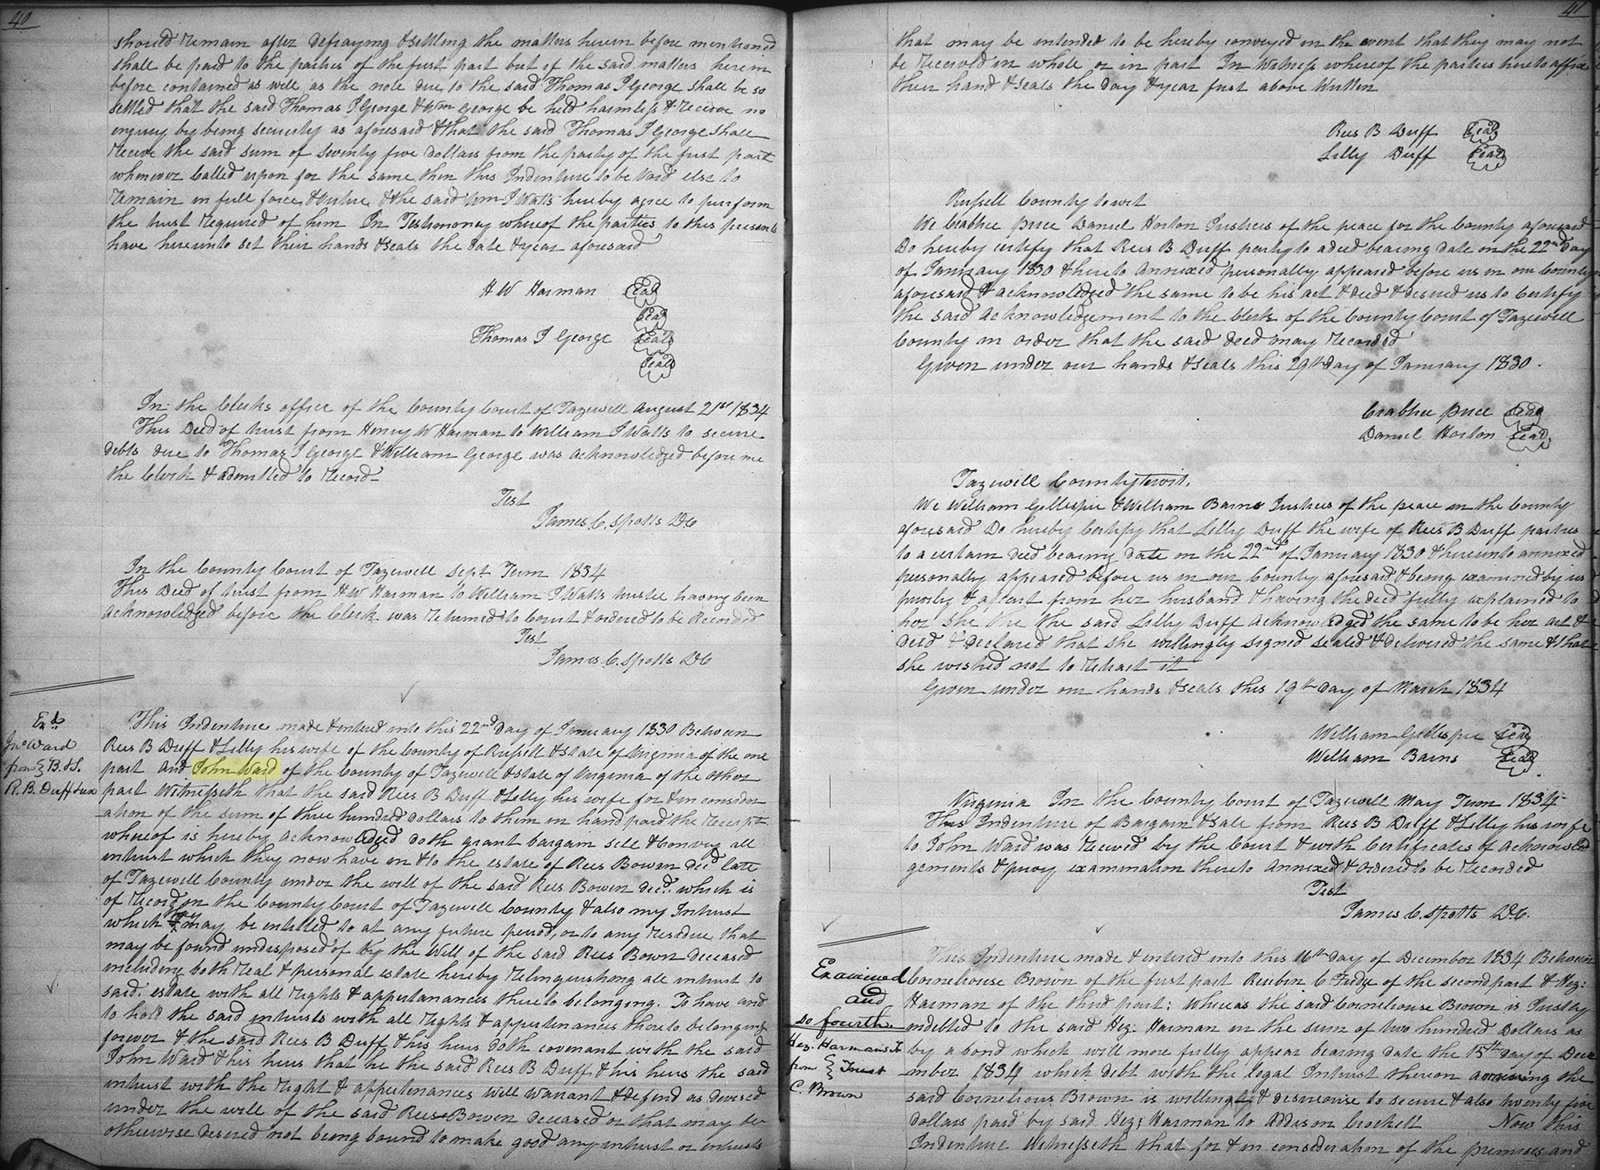 40
should remain after defraying & settling the matters herein before mentioned
shall be paid to the parties of the first part but if the said matters herein
before contained as well as the note due to the said Thomas I George shall be so
settled that the said Thomas I George & Wm George be held harmless & recieve no
injury by being security as aforesaid & that the said Thomas I George shall
receive the said sum of seventy five dollars from the party of the first part
whenever called upon for the same then this Indenture to be void else to
remain in full force & virtue & the said Wm I Watts hereby agree to perform
the trust required of him In Testimoney whereof the parties to this presents
have hereunto set their hands & seals the date & year aforesaid
H W Harman Seal
Seal
Thomas I George Seal
Seal
In the Clerks office of the County Court of Tazewell August 21st 1834
This Deed of trust from Henry W Harman to William I Watts to secure
debts due to Thomas I George & William George was acknowledged before me
the Clerk & admitted to record
Test
James C. Spotts DC
In the County Court of Tazewell Sept Term 1834
This Deed of trust from H W Harman to William I Watts trustee having been
acknowledged before the Clerk was returned to Court & ordered to be Recorded
Test
James C. Spotts DC
Exd
Jno Ward
from } B. & S.
R. B. Duff & ux
This Indenture made & entered into this 22nd day of January 1830 Between
Rees B Duff & Lilly his wife of the County of Russell & state of Virginia of the one
part and John Ward of the County of Tazewell & state of Virginia of the other
part Witnesseth that the said Rees B Duff & Lilly his wife for & in consider
ation of the sum of three hundred dollars to them in hand paid the receipt
whereof is hereby acknowledged doth grant bargain sell & convey all
intrust which they now have in & to the estate of Rees Bowen decd late
of Tazewell County under the will of the said Rees Bowen decd. which is
of record in the County Court of Tazewell County & also my Intrust
which may be entitled to at any future period, or to any residue that
may be found undisposed of by the Will of the said Rees Bowen deceased
including both real & personal estate hereby relinquishing all intrust to
said estate with all rights & appertenances thereto belonging. To have and
to hold the said intrusts with all rights & appertenances thereto belonging
forever & the said Rees B Duff & his heirs doth covenant with the said
John Ward & his heirs that he the said Rees B Duff & his heirs the said
intrust with the right & appertenances will Warrant & defend as devised
under the will of the said Rees Bowen deceased or that may be
otherwise desired not being bound to make good any intrust or intrusts
41
that may be intended to be hereby conveyed in the event that they may not
be received in whole or in part In Witness whereof the parties hereto affix
their hand & seals the day & year first above Written
Rees B Duff Seal
Lilly Duff Seal
Russell County towit
We Crabtree Price Daniel Horton Justices of the peace for the County aforesaid
Do hereby certify that Rees B Duff party to a deed bearing date on the 22nd day
of January 1830 & hereto annexed personally appeared before us in our County
aforesaid & acknowledged the same to be his act & deed & desired us to certify
the said acknowledgement to the Clerk of the County Court of Tazewell
County in order that the said deed may recorded
Given under our hands & seals this 29th day of January 1830.
Crabtree Price Seal
Daniel Horton Seal
Tazewell County towit.
We William Gillespie & William Barns Justices of the peace in the County
aforesaid Do hereby Certify that Lilly Duff the wife of Rees B Duff parties
to a certain deed bearing date on the 22nd of January 1830 & hereunto annexed
personally appeared before us in our County aforesaid & being examined by us
privily & apart from her husband & having the deed fully explained to
her she the the said Lilly Duff acknowledged the same to be her act &
deed & declared that she willingly signed sealed & delivered the same & that
she wished not to retract it
Given under our hands & seals this 19th day of March 1834
William Gillespie Seal
William Barns Seal
Virginia In the County Court of Tazewell May Term 1834
This Indenture of Bargain & sale from Rees B Duff & Lilly his wife
to John Ward was received by the Court & with Certificates of acknowled
gements & privy examination thereto annexed & ordered to be recorded
Test
James C Spotts DC.
Examined
and
so fourth
Hez. Harman Tr
from } Trust
C. Brown
This Indenture made & entered into this 16th day of December 1834 Between
Cornelious Brown of the first part Reubin C Fudge of the second part & Hez:
Harman of the third part: Whereas the said Cornelious Brown is Justly
indebted to the said Hez: Harman in the sum of two hundred Dollars as
by a bond which will more fully appear bearing date the 15th day of Dece
mber 1834 which debt with the legal Intrust thereon accruing the
said Cornelious Brown is willing & desireouse to secure & also twenty five
dollars paid by said Hez: Harman to Addison Crockett Now this
Indenture Witnesseth that for & in consideration of the premises and